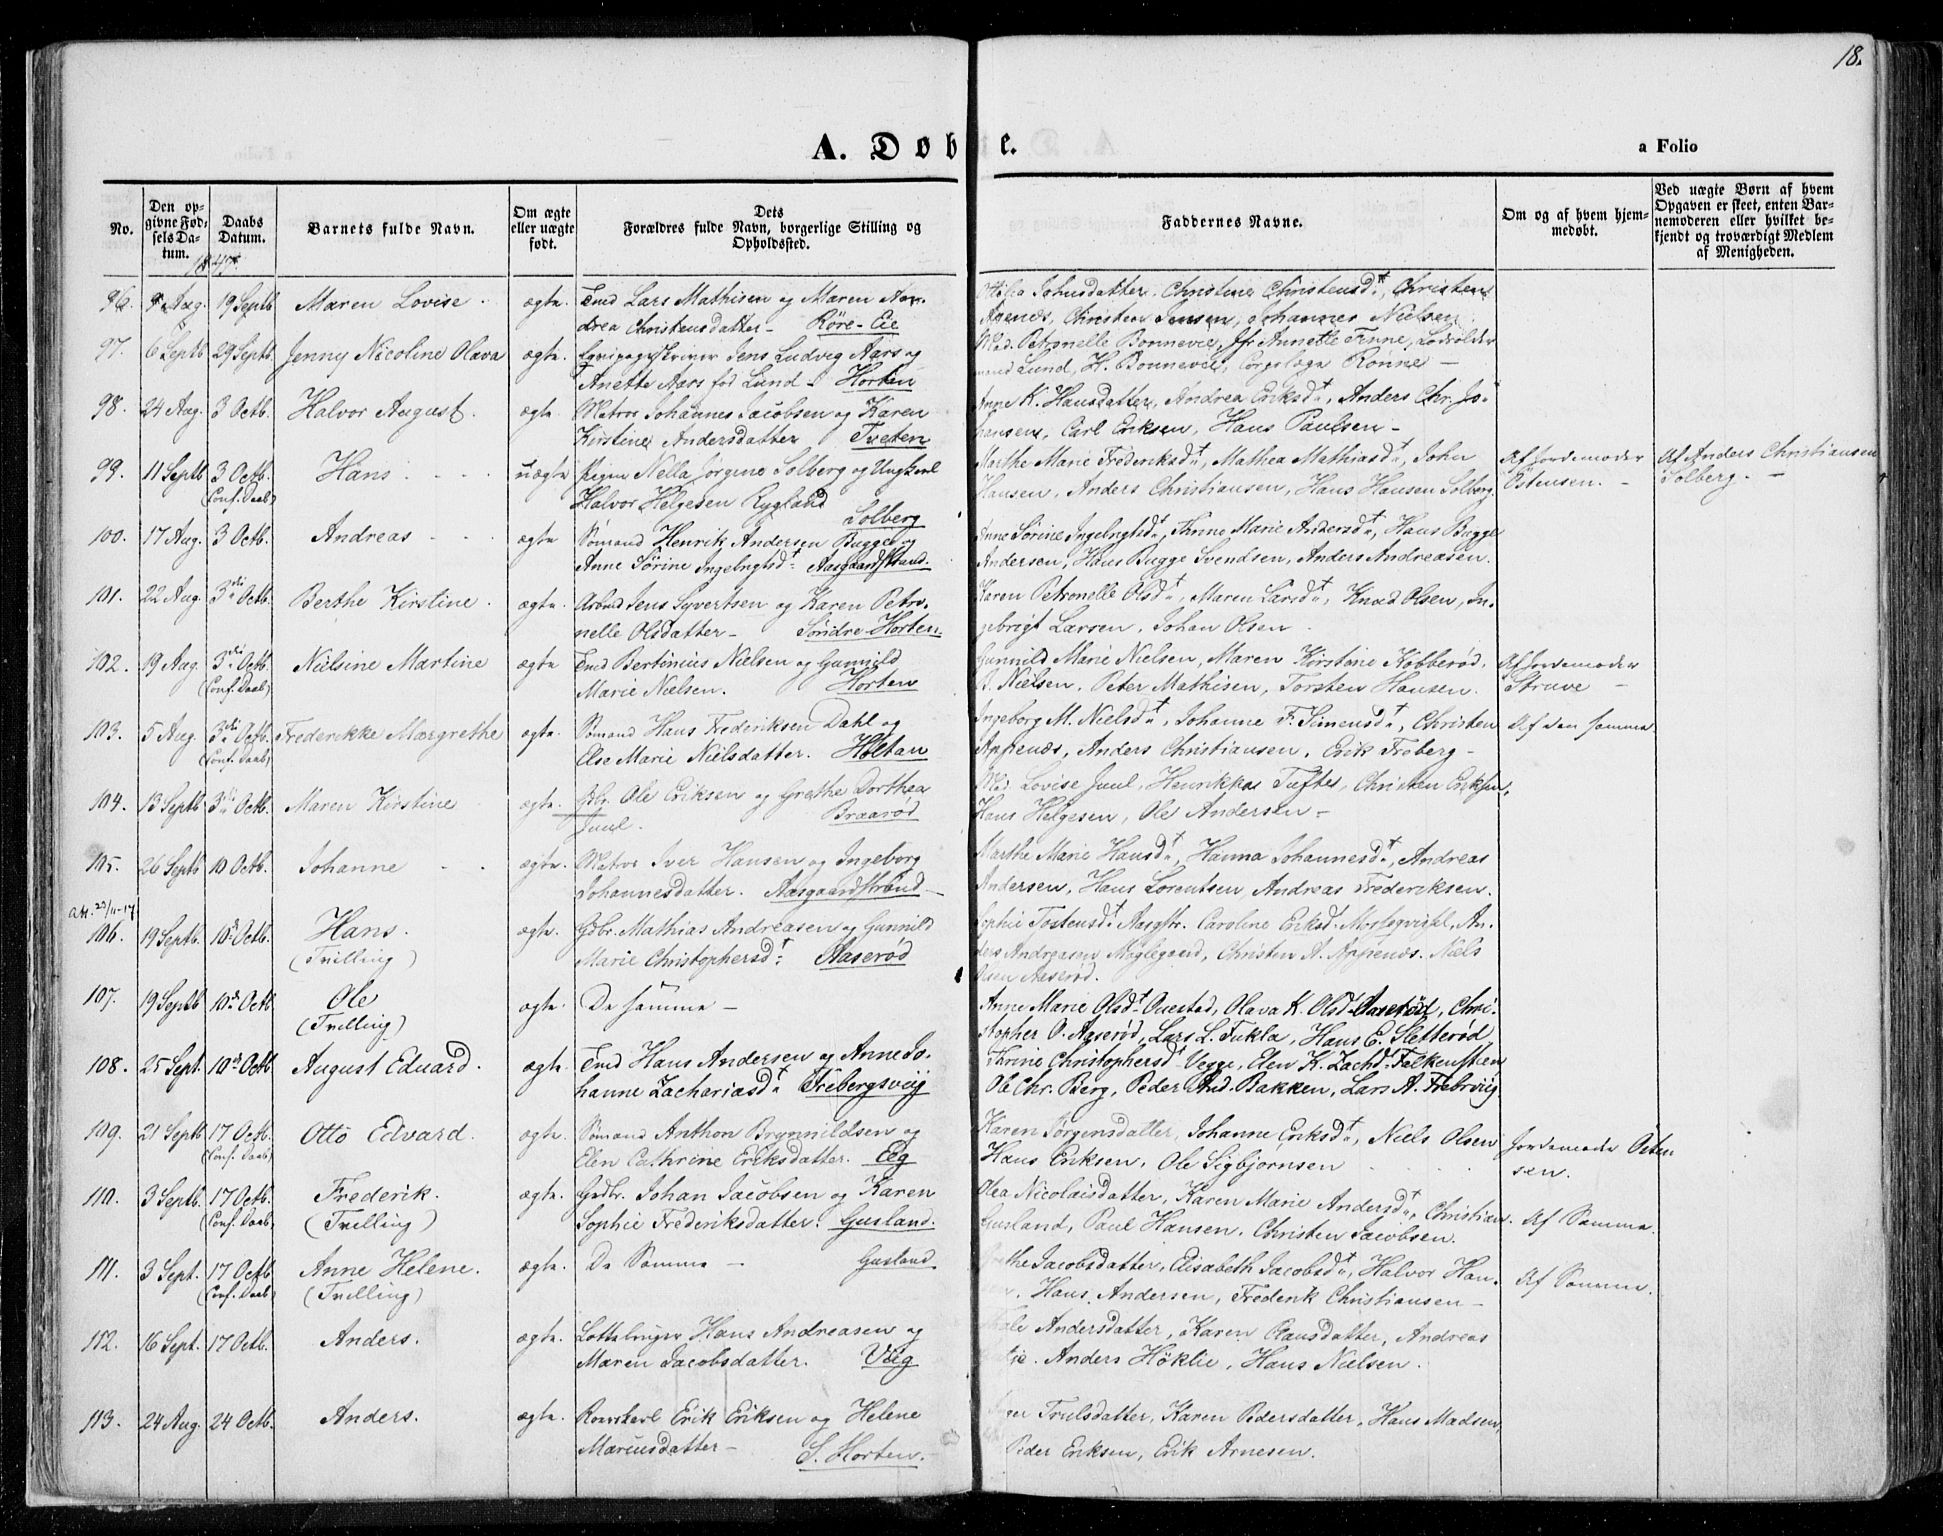 18.
A. Døbte.
a Folio
No.
Den op-
givne Fød-
sels Da-
tum.
Daabs
Datum.
Barnets fulde Navn.
Om ægte
eller uægte
født.
Dets
Forældres fulde Navn, borgerlige Stilling og
Opholdssted.
Faddernes Navne.
Om og af hvem hjem-
medøbt.
Ved uægte Børn af hvem
Opgaven er skeet, enten Bar-
nemoderen eller hvilket be-
kjendt og troværdigt Medlem
af Menigheden.
1847.
96. Aug. 19 Septb Maren Lovise. ægte Lars Mathisen og Maren An- Christine Christensdt, Christen
drea Christensdatter - Röre-Eie Christen Jensen, Johannes Nielsen.
97. 6 Septb 29 Septb. Jenny Nicoline Olava ægte. Jens Ludvig Aars og Mad. Petronelle Bonnevie, Jfr Annette
Anette Aars fød Lund - Horten Lund, H. Bonnevie, Rönne -
98. 24 Aug. 3 Octb. Halvor August. ægte Matros Johannes Jacobsen og Karen Anne K. Hansdatter, Andrea Eriksdt, Anders Chr. Jo-
Kirstine Andersdatter Tveten hansen, Carl Eriksen, Hans Paulsen -
99. 11 Septb 3 Octb. Hans uægte Pigen Nella Jørgine Solberg og Ungkarl Marthe Marie Frederiksdt, Mathea Mathiasdt, Johan Af Jordemoder Af Anders Christiansen
(Conf. Daab) Halvor Helgesen Rygland Hansen, Anders Christiansen, Hans Hansen Solberg. Östensen. - Solberg. -
Solberg
100. 17 Aug. 3 Octb. Andreas ægte Sømand Henrik Andersen Bugge og Anne Sörine Ingebrigtsdt, Anne Marie Andersdt, Hans Bugge
Anne Sörine Ingebrigtsdt: Aasgaardstrand. Andersen, Hans Bugge Svendsen, Anders Andreasen.
101. 22 Aug. 3die Octb. Berthe Kirstine. ægte. Arbmd Jens Syvertsen og Karen Petro- Karen Petronelle Olsdt, Maren Larsdt, Knud Olsen, In-
nelle Olsdatter - Söndre-Horten gebrigt Larsen, Johan Olsen.
102. 19 Aug. 3die Octb. Nielsine Martine ægte Bertinius Nielsen og Gunnild Gunnild Marie Nielsen, Maren Kirstine Kobberød, Af Jordemoder
(Conf. Daab) Marie Nielsen. Horten B. Nielsen, Peter Mathisen, Torsten Hansen. Struve -
103. 5 Aug. 3die Octb. Frederikke Margrethe ægte. Sömand Hans Frederiksen Dahl og Ingeborg M. Nielsdt, Johanne F. Simensdt, Christen Af den samme
(Conf. Daab) Else Marie Nielsdatter. Holtan Appenæs, Anders Christiansen, Erik Froberg -
104. 13 Septb 3die Octb. Maren Kirstine ægte. Gbr. Ole Eriksen og Grethe Dorthea Mad. Lovise Juul, Henrikka Tuftes, Christen Eriksen,
Juul. Braarød Hans Helgesen, Ole Andersen -
105. 26 Septb 10 Octb. Johanne ægte. Matros Iver Hansen og Ingeborg Marthe Marie Hansdt, Hanna Johannesdt, Andreas
Johannesdatter. Aasgaardstrand Andersen, Hans Lorentsen, Andreas Frederiksen.
Att. 23/11-17
106. 19 Septb. 10de Octb. Hans. ægte. Gdbr. Mathias Andreasen og Gunnild Sophie Tostensdt Aasgstr. Caroline Eriksdt An-
(Tvilling) Marie Christophersdt: Aaserød ders Andreasen Møglegaard, Christen A. Appenæs. Niels
Olsen Aaserød.
107. 19 Septb 10de Octb. Ole ægte. De samme - Anne Marie Olsdt Ouestad, Olava K. Olsdt Aaserød, Chri-
(Tvilling) stopher O. Aaserød, Lars L. Fukla, Hans E. Sletterød
108. 25 Sept. 10de Octb August Eduard. ægte. Hans Andersen og Anne Jo- Thrine Christophersdt Vegge, Elen K. Zachdt Falkensteen
hanne Zachariasdt Frebergsviig Ole Chr. Berg, Peder And. Bakken, Lars A. Frebrviig
109. 21 Septb 17 Octb. Otto Edvard. ægte. Sømand Anthon Brynnildsen og Karen Jörgensdatter, Johanne Eriksdt, Niels Olsen Jordemoder Östen
(Conf. Daab) Elen Cathrine Eriksdatter. Eeg Hans Eriksen, Ole Sigbjørnsen sen.
110. 3 Septb. 17 Octb. Frederik. ægte. Grdbr. Johan Jacobsen og Karen Olea Nicolaisdatter, Karen Marie Andersdt, Christian Af Samme.
(Conf. Daab) (Tvilling) Sophie Frederiksdatter: Gusland. Gusland, Paul Hansen, Christen Jacobsen.
111. 3 Sept. 17 Octb Anne Helene. ægte. De Samme - Gusland Jacobsdatter, Elisabeth Jacobsdt, Halvor Han- Af Samme.
(Conf. Daab) (Tvilling) Hans Andersen, Frederik Christiansen -
112. 16 Sept. 17 Octb. Anders. ægte. Lottebruger Hans Andreasen og Andersdatter, Karen Clausdatter, Andreas
Maren Jacobsdatter. Viig Anders Höklie, Hans Nielsen.
113. 24 Aug. 24 Octb. Anders. ægte. Rorskarl Erik Eriksen og Helene Trulsdatter, Karen Pedersdatter, Hans Madsen,
Mariusdatter - S. Horten. Peder Eriksen, Erik Arnesen.